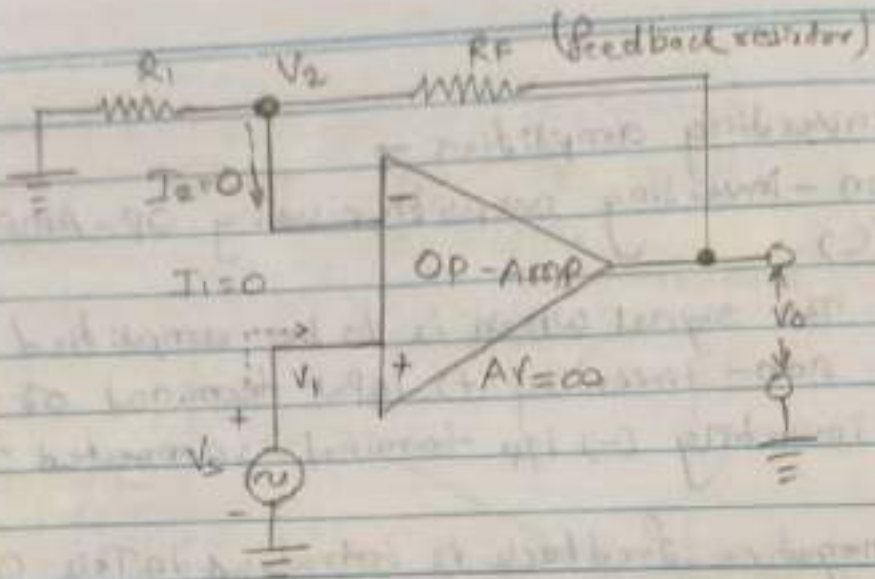 R1 V2 RF (feedback resistor)
I2=0
-
I1=0
OP-Amp
V1
+
AV=∞
Vo
+
Vs
-